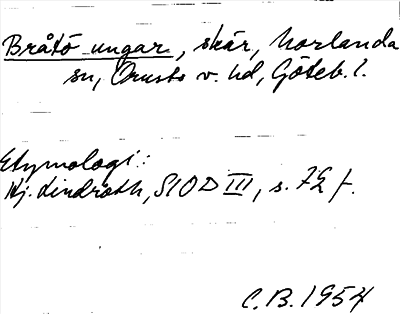 Bråtö-ungar, skär, Morlanda
sn, Orusts v. hd, Göteb. l.
Etymologi:
Hj. Lindroth, SIOD III, s. 72 f.
C.B. 1954